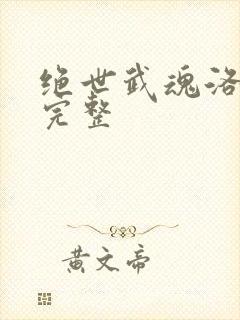 绝世武魂洛
完整
黄文帝